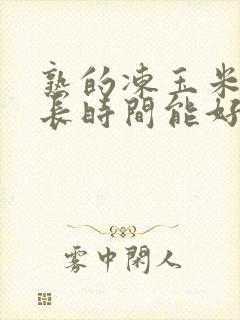 熟的凍玉米
長時間能好
雾中閑人